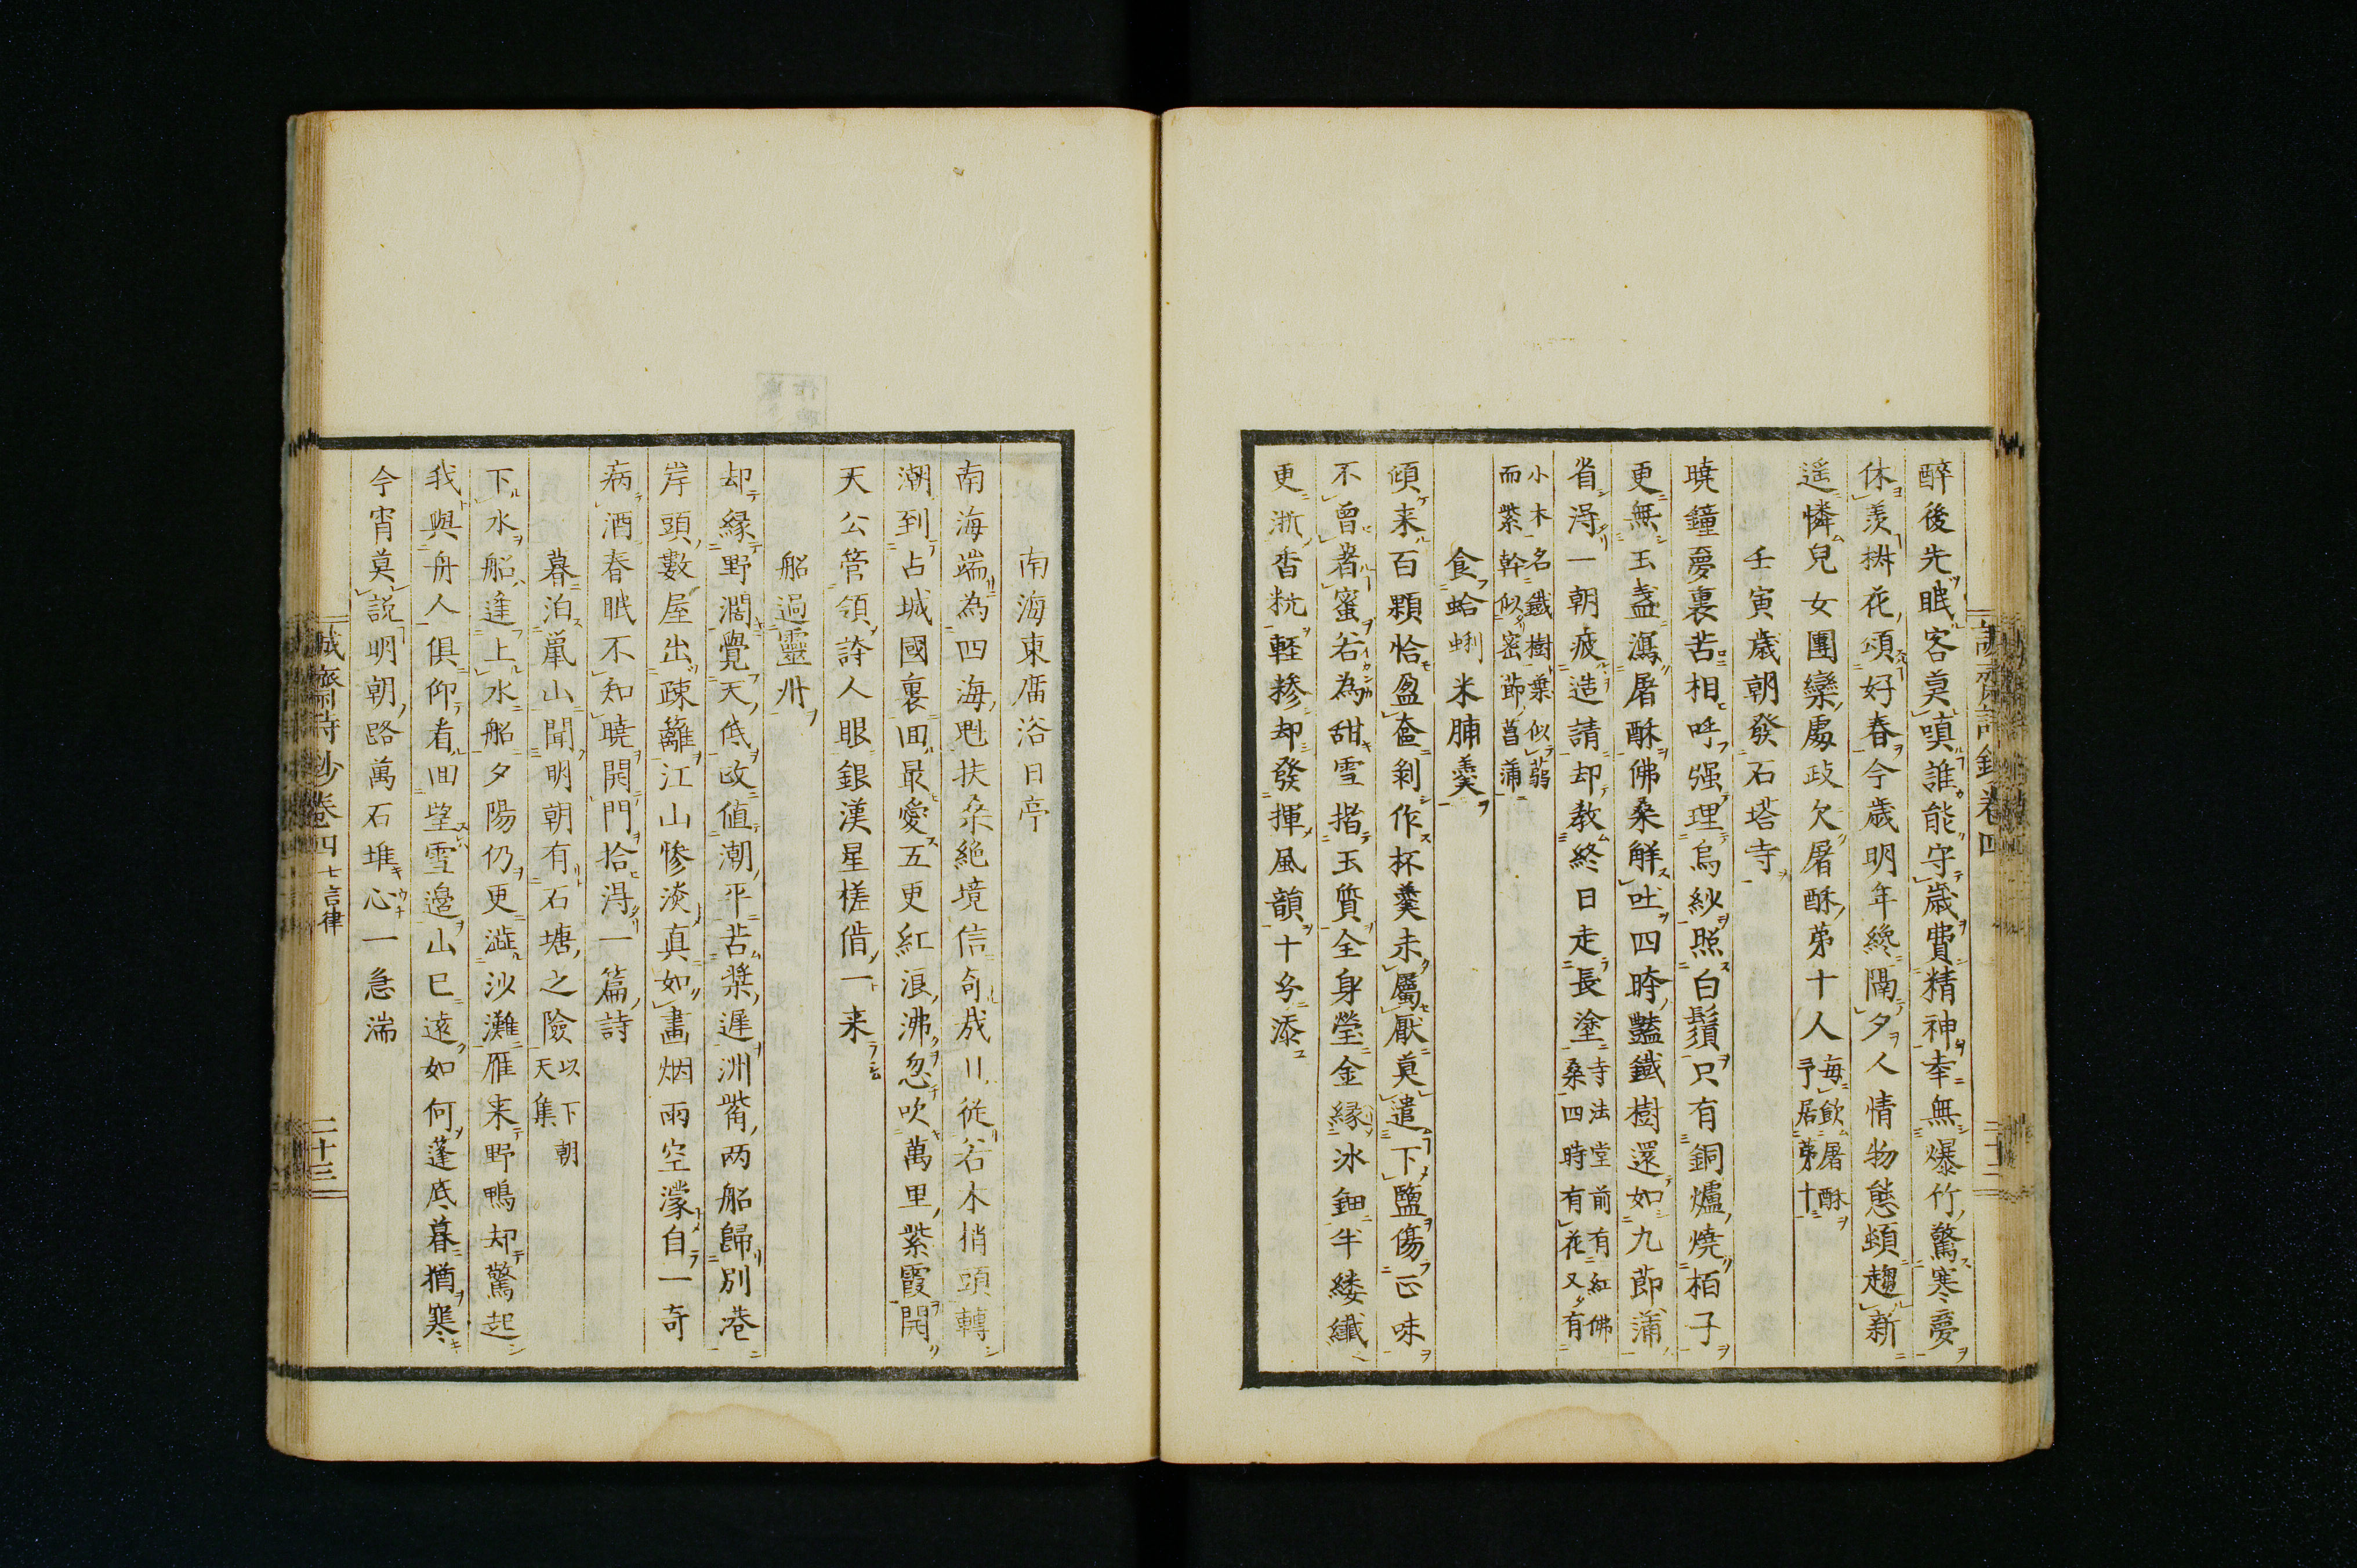 醉後先眠客莫嗔誰能守歳費精神幸無爆竹驚寒夢
休羨椒花頌好春今歳明年纔隔夕人情物態頓趨新
遥憐兒女團欒處政欠屠酥第十人毎飲屠酥予居第十
壬寅歳朝發石塔寺
曉鐘夢裏苦相呼强理烏紗照白鬚只有銅爐燒栢子
更無玉盞瀉屠酥佛桑解吐四時豔鐵樹還如九節蒲
省得一朝疲造請却教終日走長塗寺法堂前有紅佛桑四時有花又有
小木名鐵樹葉似蒻而紫幹似密節菖蒲
食蛤蜊米脯羹
傾来百顆恰盈奩剝作杯羹未屬厭莫遣下鹽傷正味
不曾著蜜若為甜雪揩玉質全身瑩金縁冰鈿半縷纖
更淅香秔輕糝却發揮風韻十分添
南海東庿浴日亭
南海端為四海魁扶桒絶境信奇哉日従若木梢頭轉
潮到占城國裏回最愛五更紅浪沸忽吹萬里紫霞開
天公管領詩人眼銀漢星槎借一来
船過靈州
却縁野濶覺天低攺值潮平苦槳遲洲觜兩船歸別港
岸頭數屋出疎籬江山慘淡真如畫烟雨空濛自一奇
病酒春眠不知曉開門拾得一篇詩
暮泊鼠山聞明朝有石塘之險以下朝天集
下水船逢上水船夕陽仍更澁沙灘雁来野鴨却驚起
我與舟人俱仰看回望雪邉山已遠如何蓬底暮猶寒
今宵莫説明朝路萬石堆心一急湍
誠齋詩鈔卷四 七言律 二十三